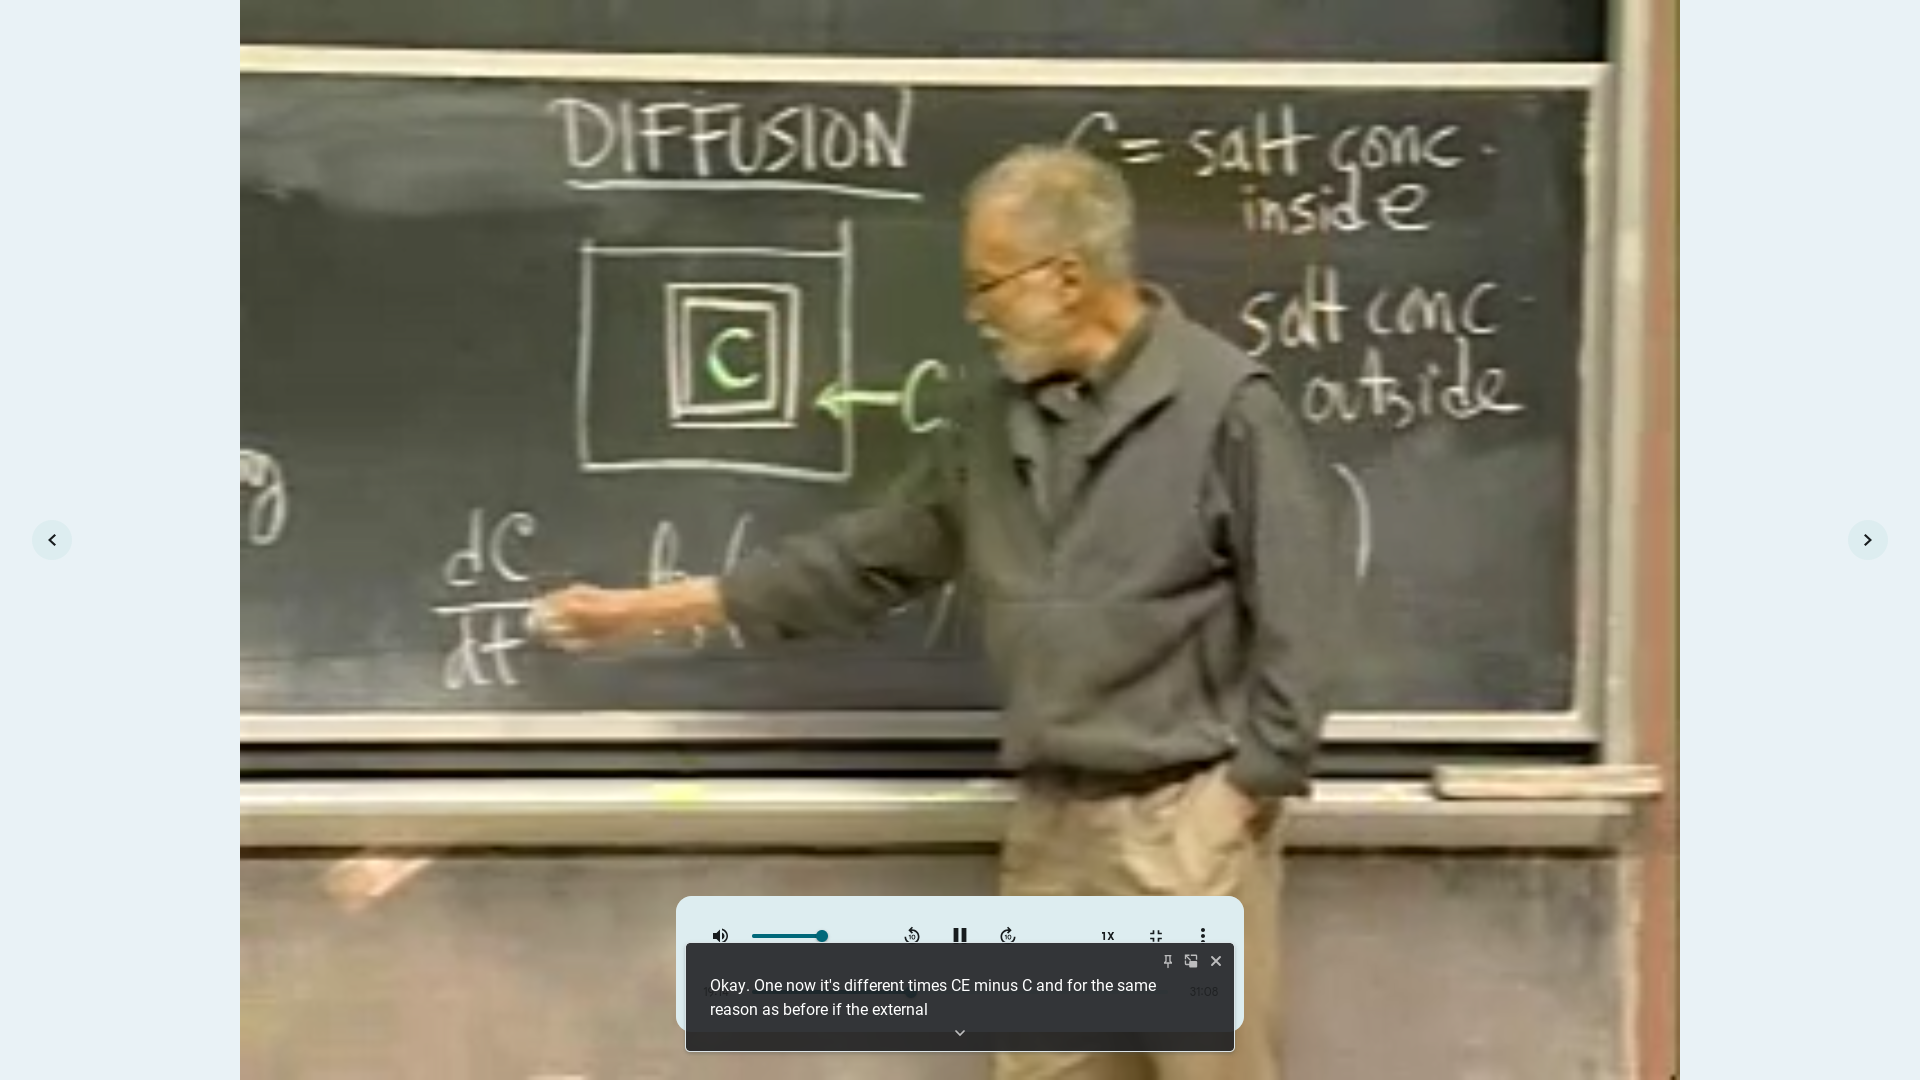 DIFFUSION
C = salt conc.
inside
C
C
salt conc.
outside
dC
dt
1X
31:08
Okay. One now it's different times CE minus C and for the same
reason as before if the external